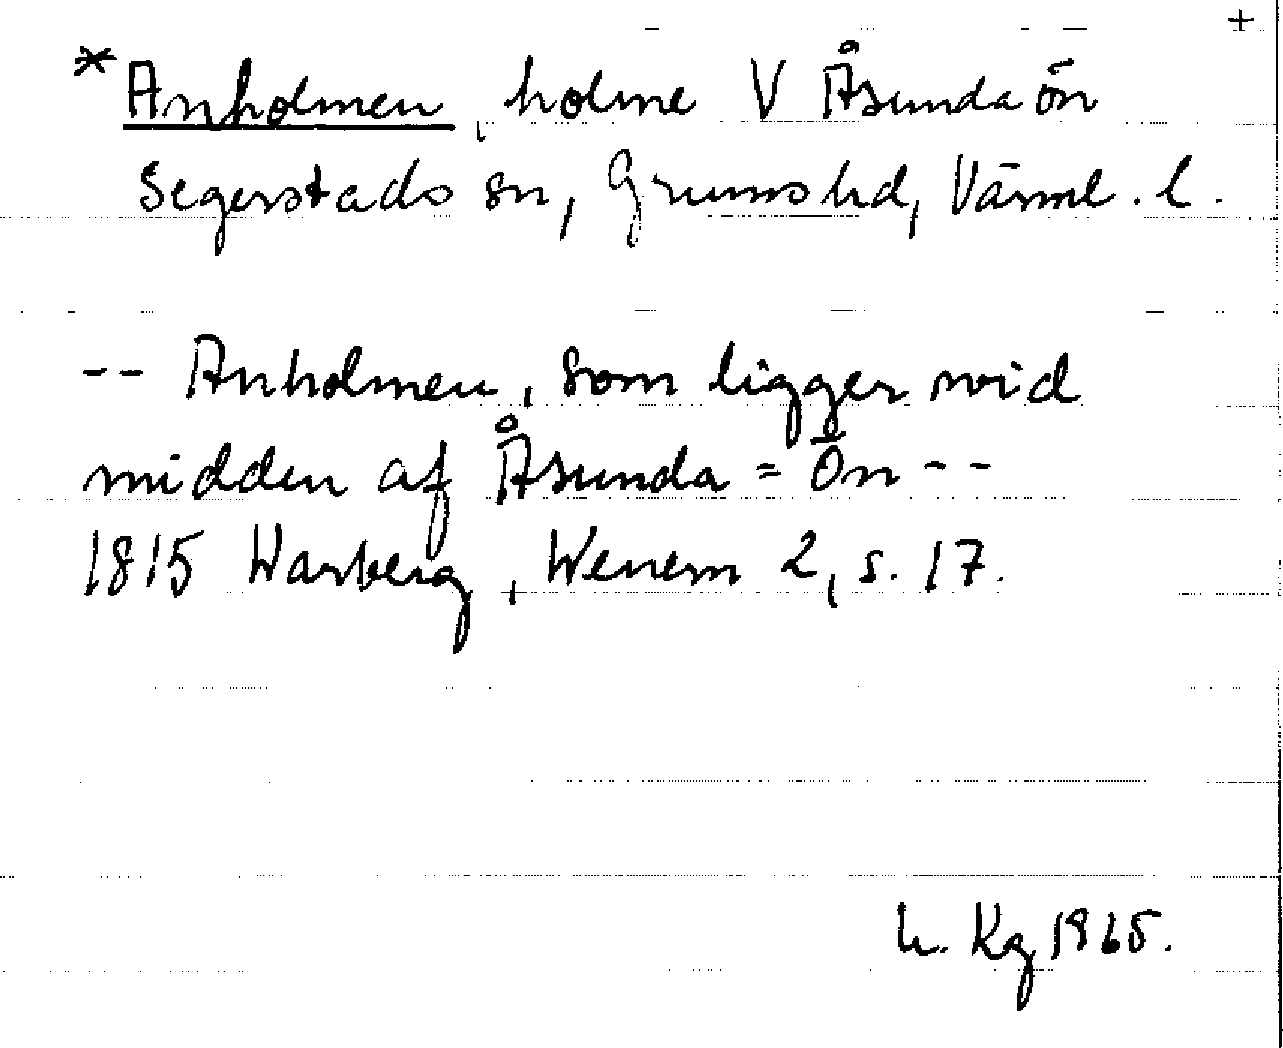 +
*Anholmen, holme V Åsundaön
Segerstads sn, Grums hd, Värml. l.
-- Anholmen, som ligger wid
midden af Åsunda=Ön--
1815 Warberg, Wenern 2, s. 17.
Kg 1965.